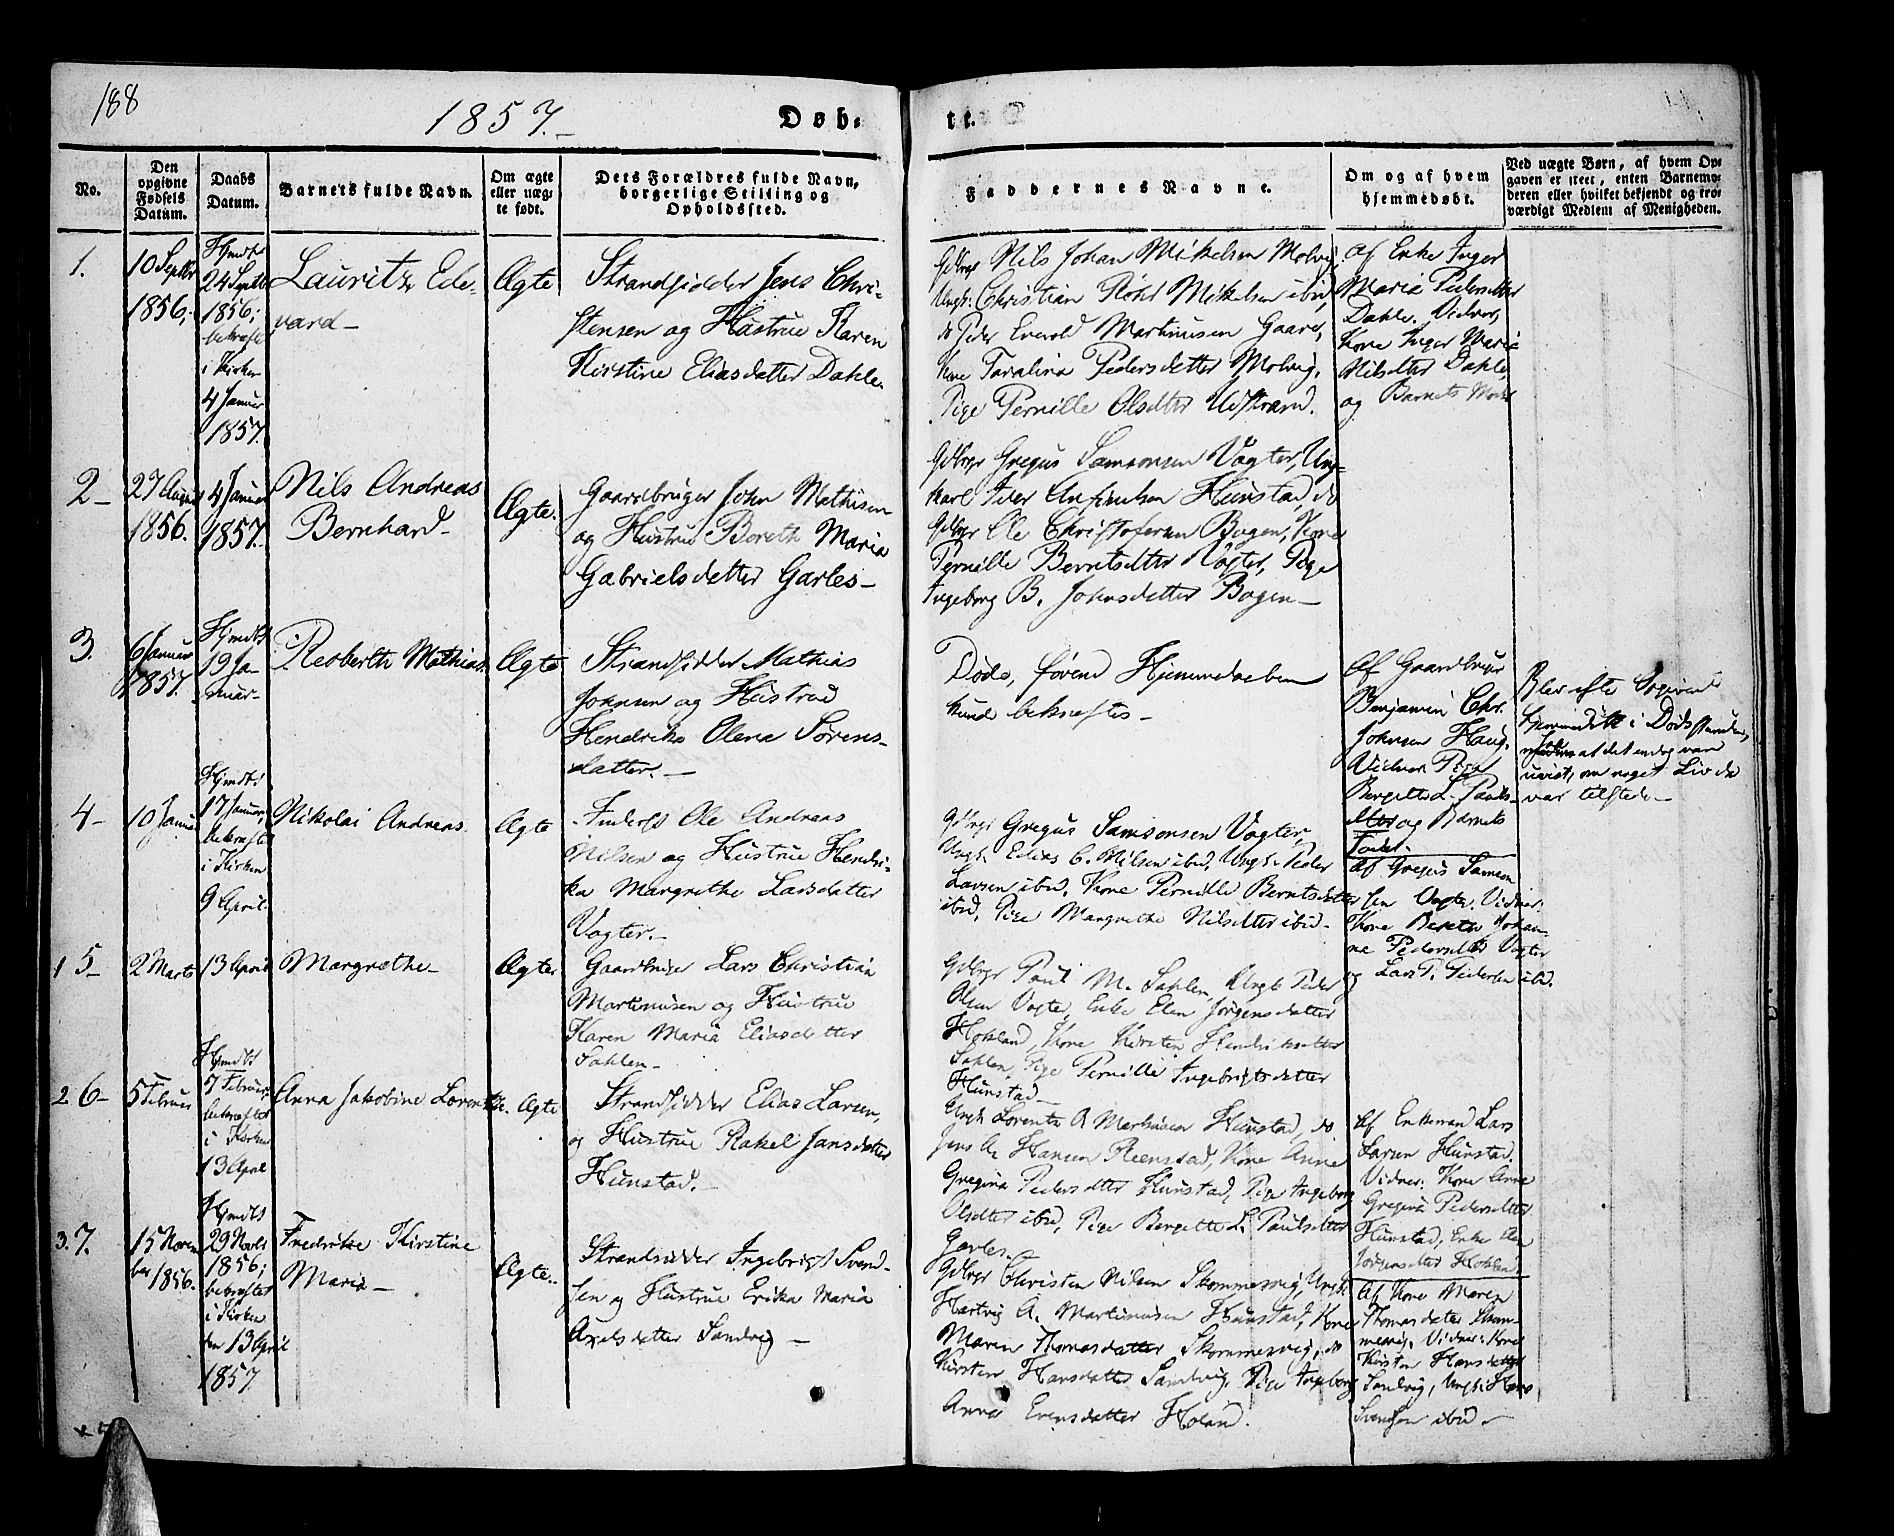 188
1857.
Døb-
te.
No.
Den
opgivne
Fødsels
Datum.
Daabs
Datum.
Barnets fulde Navn.
Om ægte
eller uæg-
te født.
Dets Forældres fulde Navn,
borgerlige Stilling og
Opholdssted.
Faddernes Navne.
Om og af hvem
hjemmedøbt.
Ved uægte Børn, af hvem Op-
gaven er skeet, enten Barnemo-
deren eller hvilket bekjendt og tro-
værdigt Medlem af Menigheden.
1.
10 Septbr
1856,
Hjmdbt
24 Septbr
1856;
bekræftet
i Kirken
4 Januar
1857.
Lauritz Ede-
vard
Ægte
Strandsidder Jens Chri-
stensen og Hustrue Karen
Kirstine Eliasdatter Dahle.
Gdbrgr Nils Johan Mikelsen Molvig,
Ungk: Christian Røhr Mikelsen ibid,
do Peder Everold Martinusen Gaare,
Kone Taralina Pedersdatter Molvig,
Pige Pernille Olsdtter Udstrand.
af Enke Inger
Maria Pedersdtter
Dahle. Vidner,
Kone Inger Maria
Nilsdtter Dahle,
og Barnets Moder
2
27 August
1856.
4 Januar
1857.
Nils Andreas
Bernhard
Ægte.
Gaardbruger John Mathisen
og Hustrue Bereth Maria
Gabrielsdatter Garles
Gdbrgr Gregus Samsonsen Vagter, Ung-
karl Iver Anfindsen Hunstad, do
Gdbrgr Ole Christofersen Bogen, Kone
Pernille Berntsdtter Vagter, Pige
Ingeborg B. Johnsdatter Bogen
3.
6 Januar
1857.
Hjmdbt
19 Ja-
nuar
Reoberth Mathias
Ægte
Strandsidder Mathias
Johnsen og Hustrue
Hendrike Olena Sørens-
datter.
Døde, førend Hjemmedaaben
kunde bekræftes
Af Gaardbruger
Benjamin Chr.
Johnsen Haug.
Vidner Pige
Bergitte L. Pauls-
dtter og Barnets
Fader.
Blev efter Opgivende
hjemmedøbt i Dødsstunden,
at det endog var
uvist, om noget Liv da
var tilstede
4
10 Januar
Hjmdbt
17 Januar,
bekræftet
i Kirken
9 April.
Nikolai Andreas
Ægte
Ole Andreas
Nilsen og Hustrue Hendri-
ka Margrethe Larsdatter
Vagter.
Gdbrgr Gregus Samsonsen Vagter,
Ungk. Edias C. Nilsen ibid, Ungk. Peder
Larsen ibid, Kone Pernille Berntsdatter
ibid, Pige Margrethe Nilsdtter ibid
Af Gregus Samson-
sen Vagter. Vidner:
Kone Johan-
ne Pedersdtter Vagter
og Lars T. Pedersen ibid.
1 5
2 Marts
13 April
Margrethe
Ægte
Gaardbruger Lars Christian
Martinusen og Hustrue
Karen Maria Eliasdatter
Sahlen
Gdbrgr Paul M. Sahlen, Ungk Peder
Olsen Vagter, Enke Elen Jørgensdatter
Hokland, Kone Kirsten Hendriksdtter
Sahlen, Pige Pernille Ingebrigtsdatter
Hunstad
2 6
5 Februar
Hjmdbt
7 Februar,
bekræftet
i Kirken
13 April
Anna Jakobine Lorentze.
Ægte
Strandsidder Elias Larsen,
og Hustrue Rakel Jansdatter
Hunstad.
Ungk Lorents A Martinisen Hunstad, do
Jens A. Hansen Reenstad, Kone Anne
Gregina Pedersdtter Hunstad, Pige Ingeborg
Olsdtter ibid, Pige Bergitte L. Paulsdtter
Garles
Af Enkemand Lars
Larsen Hunstad.
Vidner: Kone Anne
Gregina Pedersdtter
Hunstad, Enke Elen
Jørgensdtter Hokland
3. 7.
15 Novem
ber 1856.
Hjmdbt
29 Novbr
1856;
bekræftet
i Kirken
den 13 April
1857
Fredrikke Kirstine
Maria
Ægte.
Strandsidder Ingebrigt Svend-
sen og Hustrue Erika Maria
Axelsdatter Sandvig
Gdbrgr Christen Nilsen Skommesvig, Ungk.
Hartvig A. Martinusen Hunstad, Kone
Maren Thomasdatter Skommesvig, do
Kirsten Hansdatter Sandvig, Pige Ingeborg
Anna Evensdatter Holand.
Af Kone Maren
Thomasdatter Skom-
mesvig. Vidner: Kone
Kirsten Hansdatter
Sandvig, Ungk: Hans
Svendsen ibid